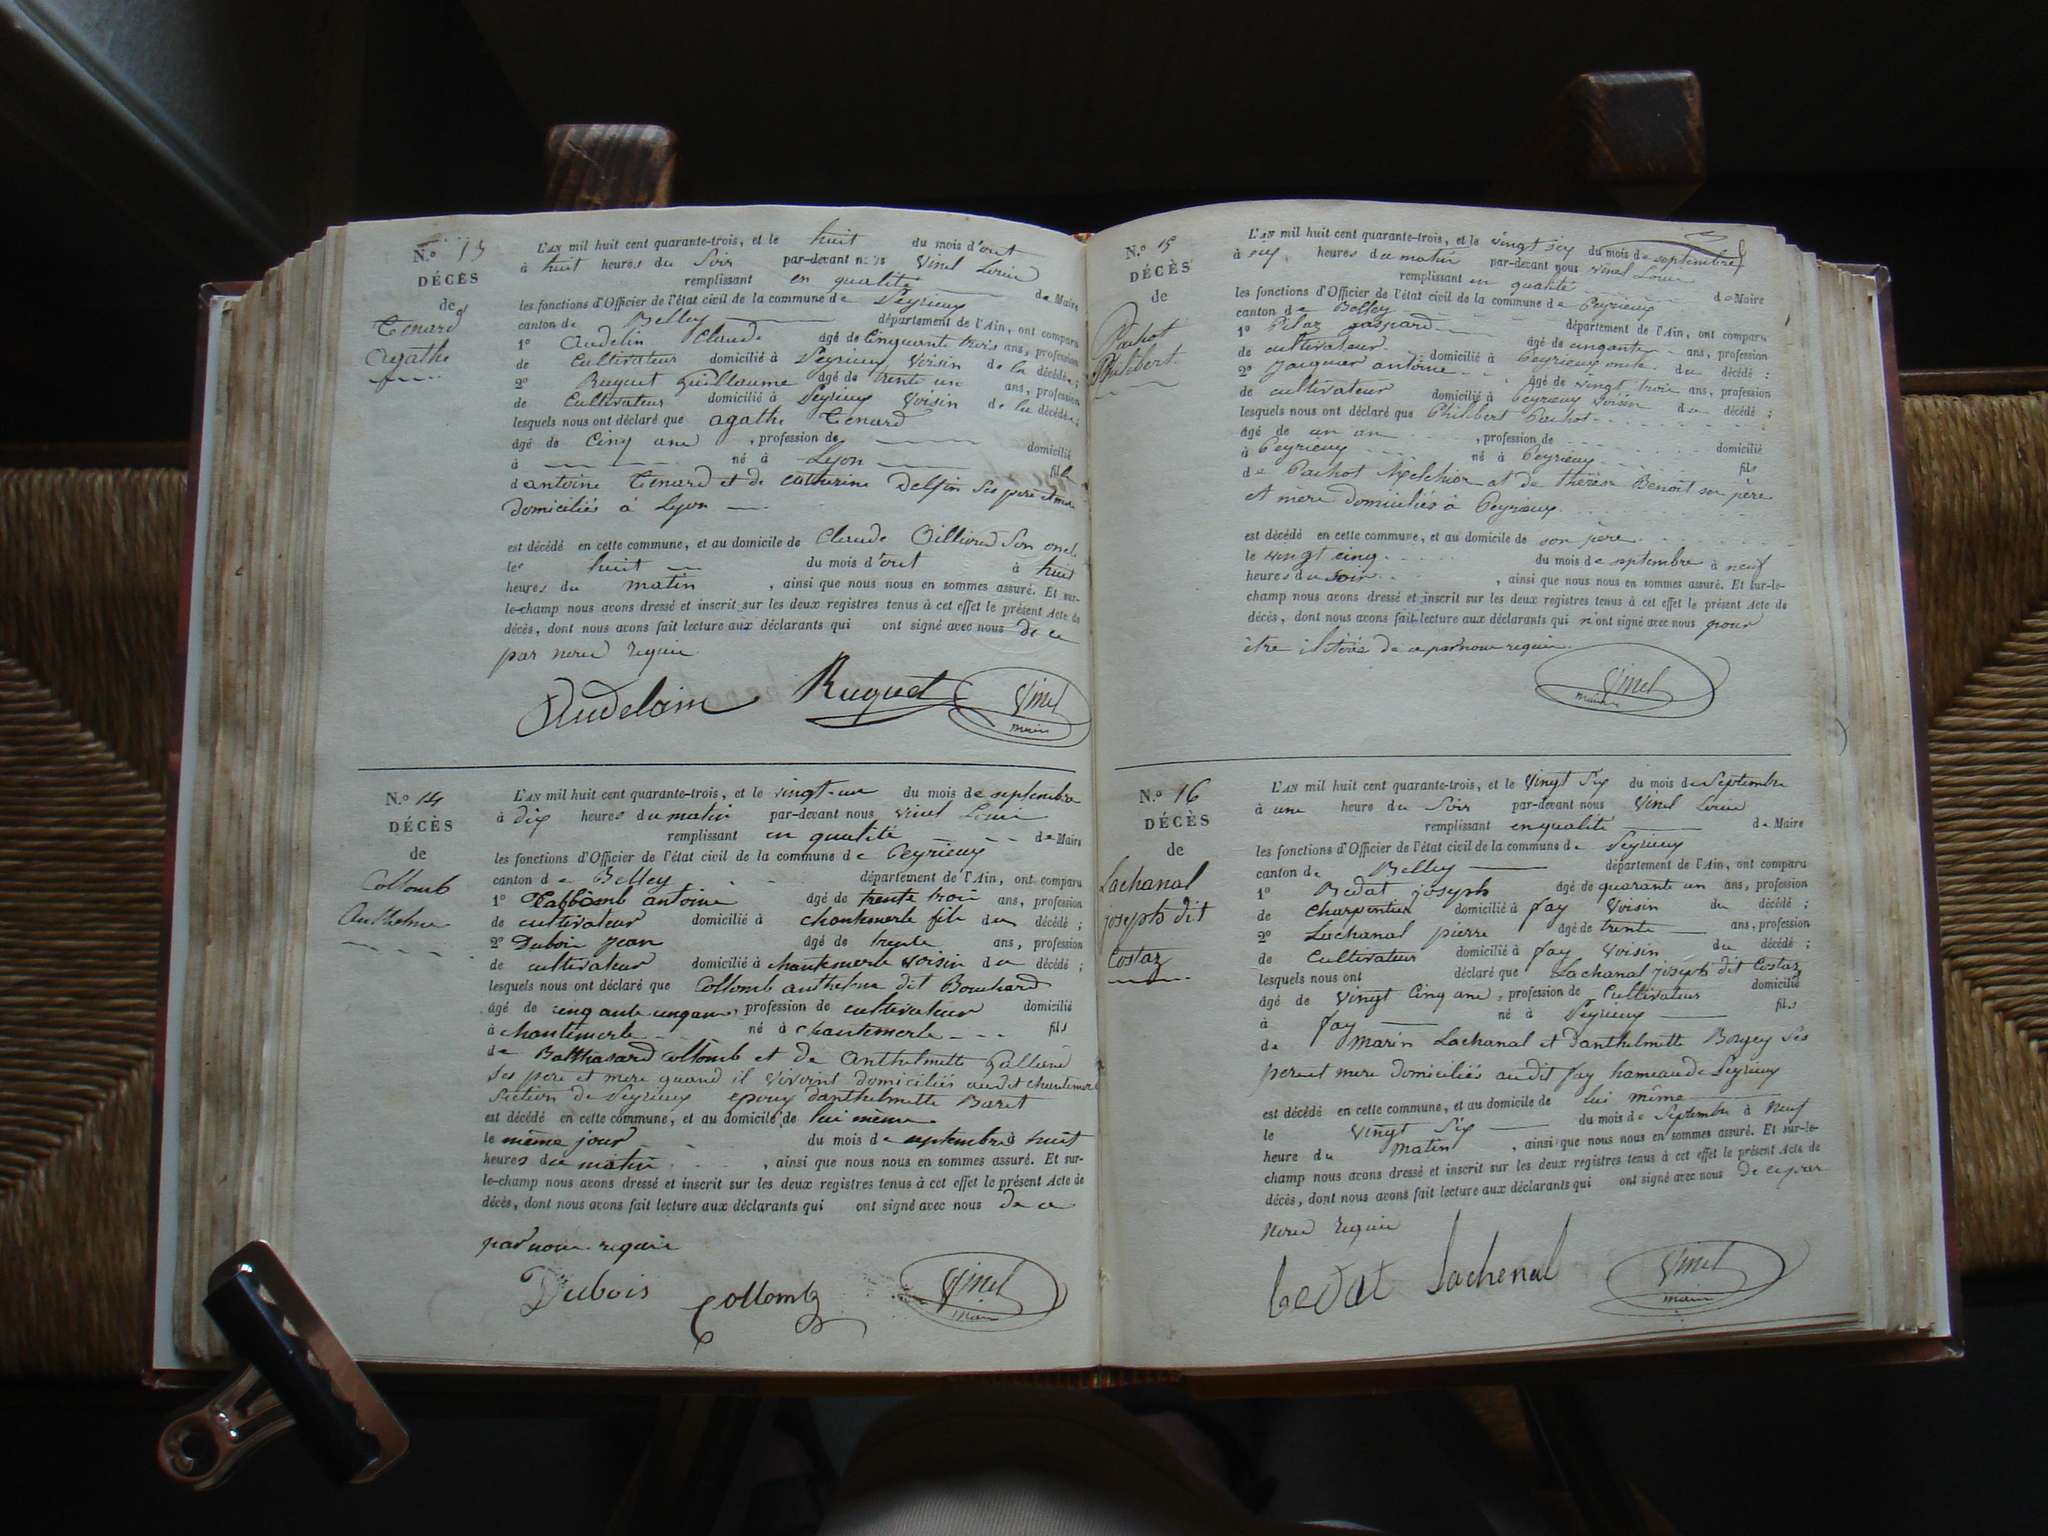 N.o 13
DÉCÈS
de
Tenard
Agathe
L'AN mil huit cent quarante-trois, et le huit du mois d'out
à huit heures du Soir par-devant nous Vinel Louis
remplissant en qualité de Maire
les fonctions d'Officier de l'état civil de la commune de Peyrieux
canton de Belley département de l'Ain, ont comparu
1o Audelin Claude âgé de Cinquante trois ans, profession
de Cultivateur domicilié à Peyrieux Voisin de la décédée;
2o Ruguet Guillaume âgé de trente un ans, profession
de Cultivateur domicilié à Peyrieux Voisin de la décédée;
lesquels nous ont déclaré que agathe Tenard
âgé de Cinq ans, profession de domicilié
à né à Lyon fille
d antoine Tenard et de Catherine Delfin Ses père et mère
domiciliés à Lyon
est décédé en cette commune, et au domicile de Claude Billiond Son oncle
le huit du mois d'out à huit
heures du matin, ainsi que nous nous en sommes assuré. Et sur-
le-champ nous avons dressé et inscrit sur les deux registres tenus à cet effet le présent Acte de
décès, dont nous avons fait lecture aux déclarants qui ont signé avec nous de ce
par nous requis
Audelain Ruguet Vinel
maire
N.o 14
DÉCÈS
de
Collomb
Anthelme
L'AN mil huit cent quarante-trois, et le vingt-un du mois de septembre
à dix heures du matin par-devant nous vinel Louis
remplissant en qualité de Maire
les fonctions d'Officier de l'état civil de la commune de Peyrieux
canton de Belley département de l'Ain, ont comparu
1o Collomb antoine âgé de trente trois ans, profession
de cultivateur domicilié à chantemerle fils du décédé;
2o Dubois Jean âgé de trente ans, profession
de cultivateur domicilié à chantemerle voisin du décédé;
lesquels nous ont déclaré que Collomb anthelme dit Bouchard
âgé de cinquante cinq ans, profession de cultivateur domicilié
à chantemerle né à chantemerle fils
de Balthasard Collomb et de Anthelmette Galliend
Ses père et mère quand il vivoint domiciliés audit chantemerle
section de Peyrieux epoux danthelmette Baret
est décédé en cette commune, et au domicile de lui même
le même jour du mois de septembre à huit
heures du matin, ainsi que nous nous en sommes assuré. Et sur-
le-champ nous avons dressé et inscrit sur les deux registres tenus à cet effet le présent Acte de
décès, dont nous avons fait lecture aux déclarants qui ont signé avec nous de ce
par nous requis
Dubois Collomb Vinel
maire
N.o 15
DÉCÈS
de
Pachot
Philibert
L'AN mil huit cent quarante-trois, et le vingt six du mois de septembre
à six heures du matin par-devant nous vinel Louis
remplissant en qualité de Maire
les fonctions d'Officier de l'état civil de la commune de Peyrieux
canton de Belley département de l'Ain, ont comparu
1o Pilaz gaspard âgé de cinquante ans, profession
de cultivateur domicilié à Peyrieux oncle du décédé;
2o Jacquier antoine âgé de vingt trois ans, profession
de cultivateur domicilié à Peyrieux voisin du décédé;
lesquels nous ont déclaré que Philibert Pachot
âgé de un an, profession de domicilié
à Peyrieux né à Peyrieux fils
de Pachot Melchior et de thérèse Benoit ses père
et mère domiciliés à Peyrieux
est décédé en cette commune, et au domicile de son père
le vingt cinq du mois de septembre à neuf
heures du soir, ainsi que nous nous en sommes assuré. Et sur-le-
champ nous avons dressé et inscrit sur les deux registres tenus à cet effet le présent Acte de
décès, dont nous avons fait lecture aux déclarants qui n ont signé avec nous pour
être illitérés de ce par nous requis
Vinel
maire
N.o 16
DÉCÈS
de
Lachanal
joseph dit
Costaz
L'AN mil huit cent quarante-trois, et le Vingt Six du mois de Septembre
à une heure du Soir par-devant nous Vinel Louis
remplissant en qualité de Maire
les fonctions d'Officier de l'état civil de la commune de Peyrieux
canton de Belley département de l'Ain, ont comparu
1o Bedat joseph âgé de quarante un ans, profession
de Charpentier domicilié à fay Voisin du décédé;
2o Lachanal pierre âgé de trente ans, profession
de Cultivateur domicilié à fay Voisin du décédé;
lesquels nous ont déclaré que Lachanal joseph dit Costaz
âgé de Vingt Cinq ans, profession de Cultivateur domicilié
à fay né à Peyrieux fils
de Marin Lachanal et danthelmette Borgey Ses
père et mere domiciliés audit fay hameau de Peyrieux
est décédé en cette commune, et au domicile de lui même
le Vingt Six du mois de Septembre à Neuf
heure du Matin, ainsi que nous nous en sommes assuré. Et sur-le-
champ nous avons dressé et inscrit sur les deux registres tenus à cet effet le présent Acte de
décès, dont nous avons fait lecture aux déclarants qui ont signé avec nous de ce par
nous requis
bedat lachenal Vinel
maire